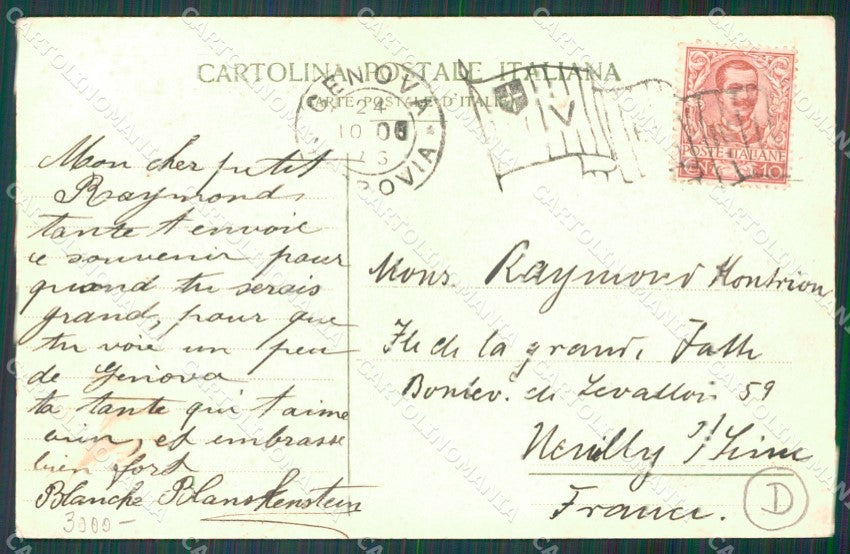 CARTOLINA POSTALE ITALIANA
(CARTE POSTALE D'ITALIE)
GENOVA
24
10 06
FERROVIA
V
POSTE ITALIANE
10
Mon cher petit
Raymond
tante t envoie
ce souvenir pour
quand tu serais
grand, pour que
tu voie un peu
de Genova
ta tante qui t'aime
bien, et embrasse
bien fort
Blanche Blanskenstein
3000-
Mons. Raymond Montrion
Ile de la grande Jatte
Boulev. de Levallois 59
Neuilly s/ Seine
France.
D
CARTOLINOMANIA